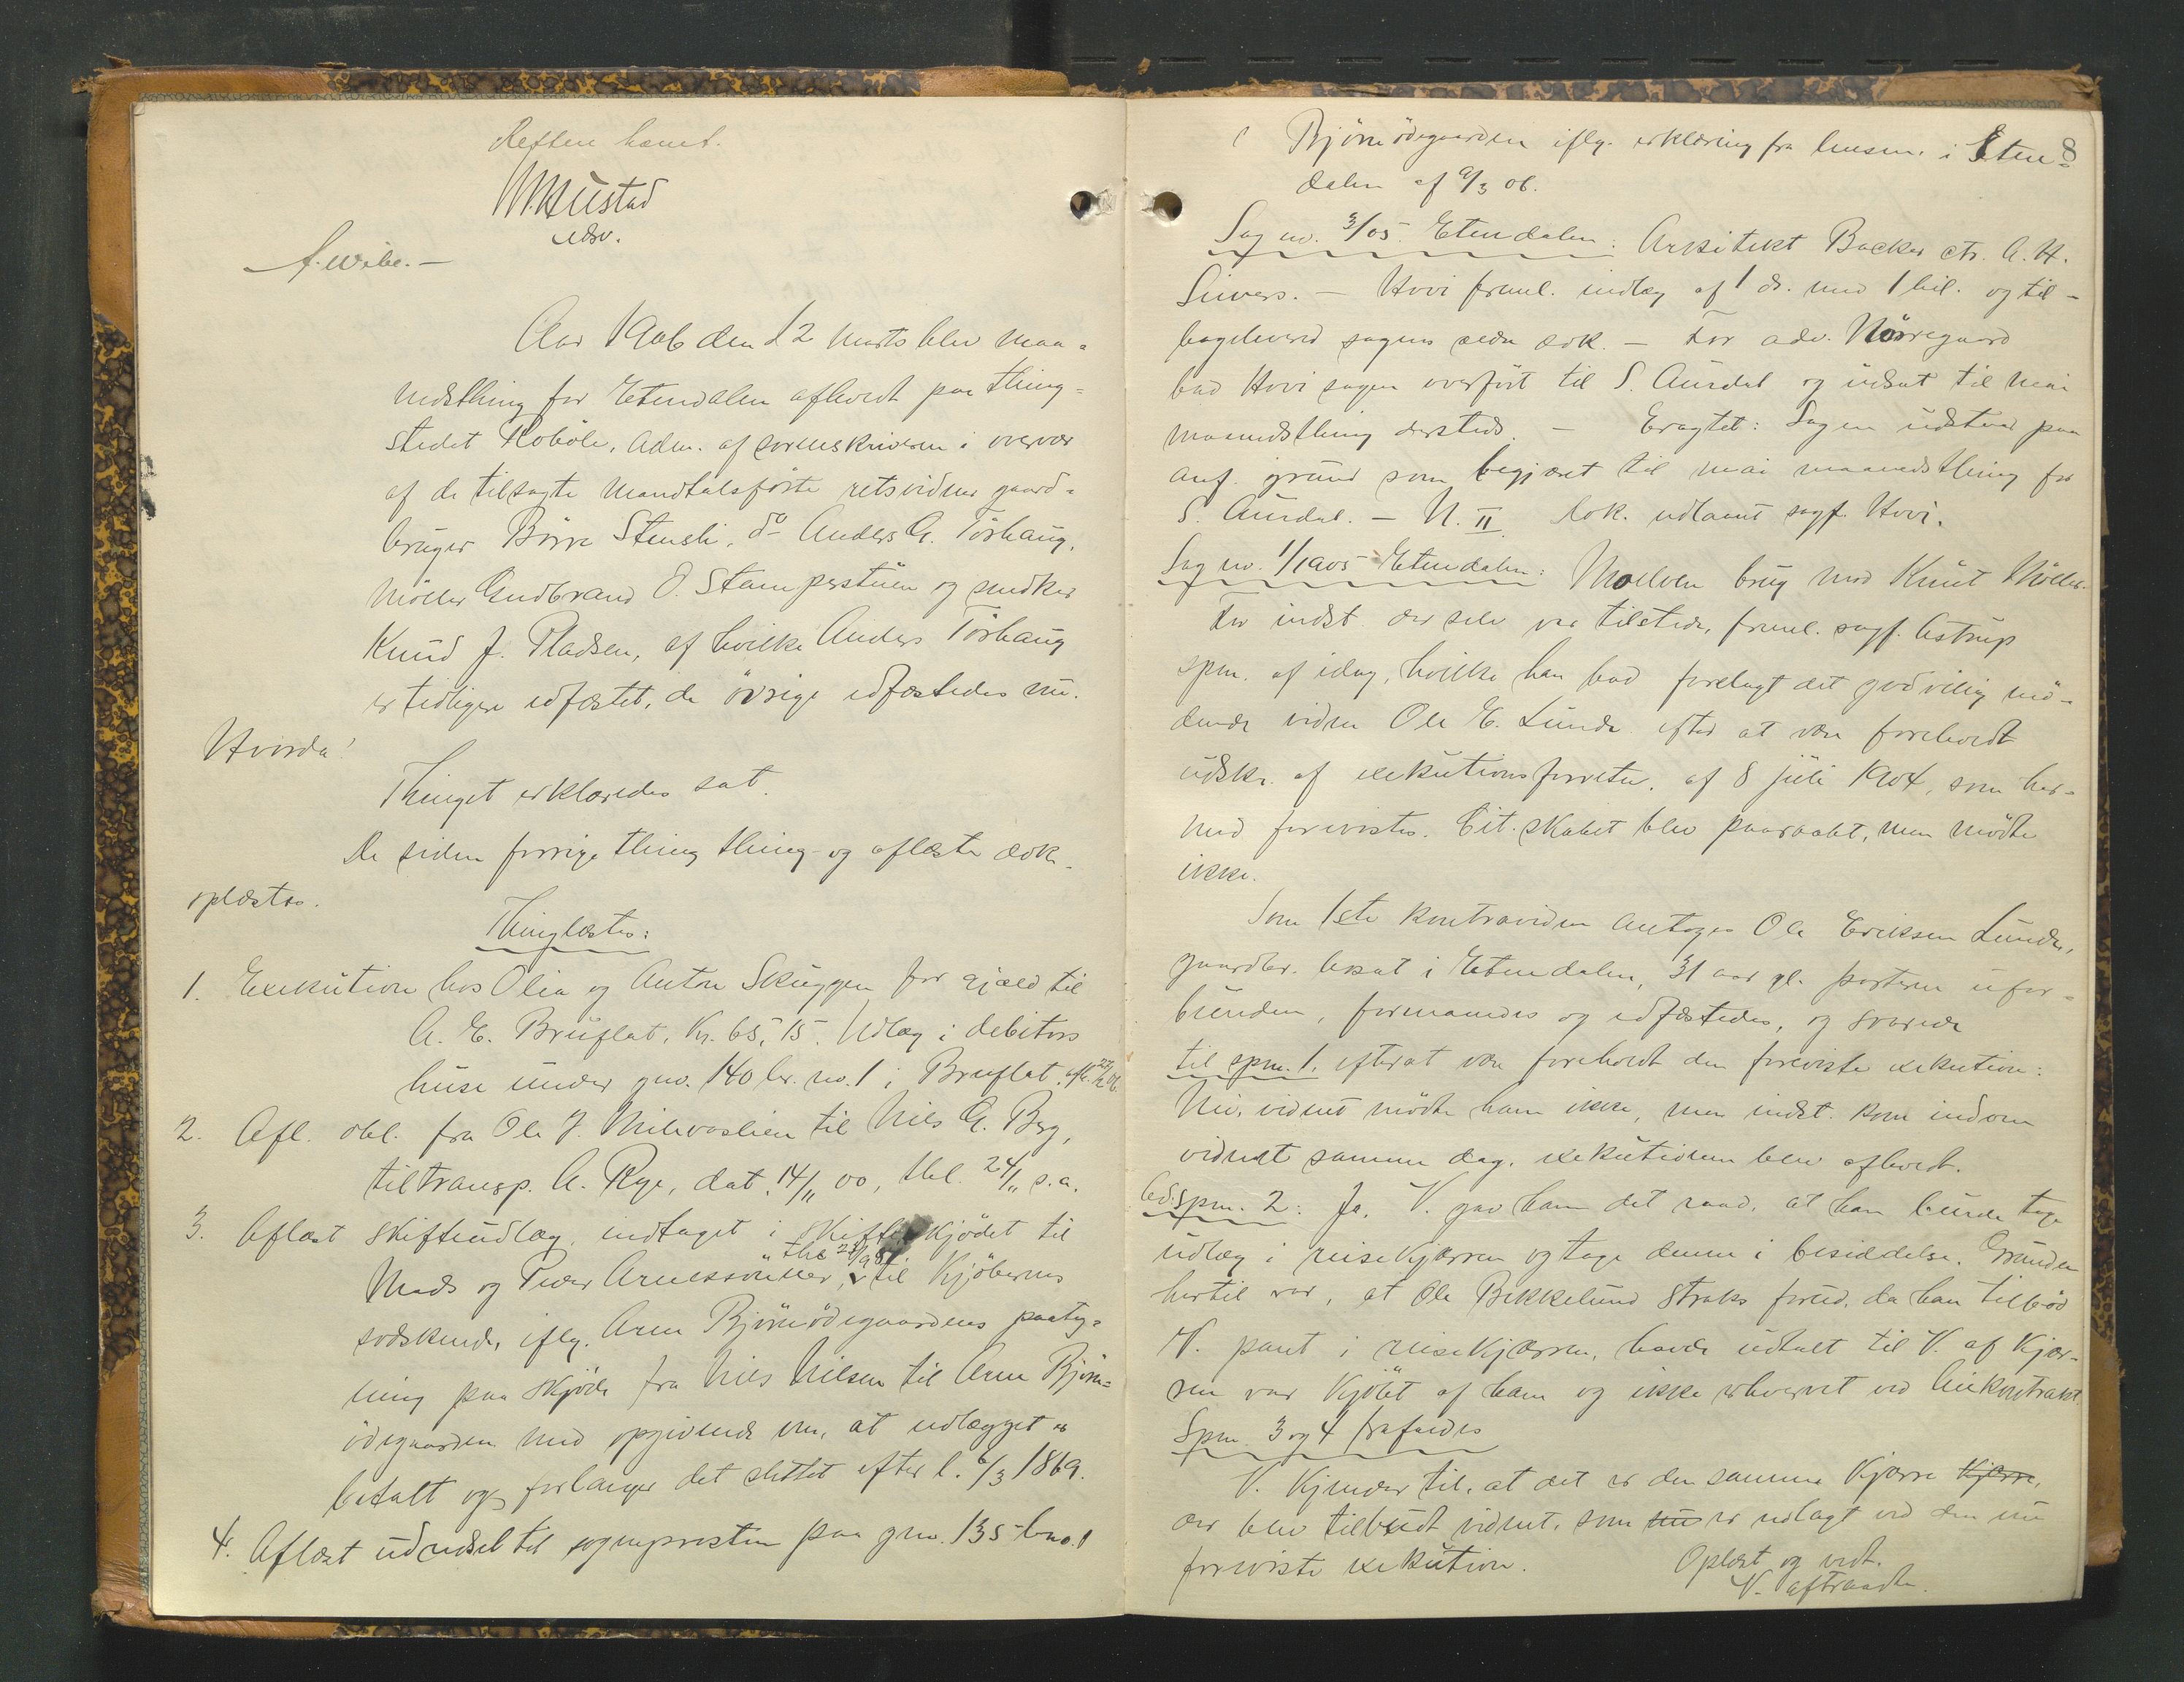 Retten hævet.
M. Hustad
edsv.
A. Wibe.-
Aar 1906 den 12 marts blev maa-
nedsthing for Etnedalen afholdt paa thing-
stedet Robøle, adm. af sorenskriveren i overvær
af de tilsagte mandtalsførte retsvidner gaard-
bruger Børre Stensli, do Anders G. Tørhaug,
møller Gudbrand O. Stampestuen og snedker
Knud J. Pladsen, af hvilke Anders Tørhaug
er tidligere edfæstet, de øvrige edfæstedes nu.
Hvorda!
Thinget erklæredes sat.
De siden forrige thing thing- og aflæste dok.
oplæstes.
Thinglæstes:
1. Exekution hos Olia og Anton Skuggen for gjæld til
A. E. Bruflat, Kr. 65,15. Udlæg i debitors
huse under gno. 140 br. no. 1 i Bruflat, afh. 22/2 06.
2. Afl. obl. fra Ole J. Milevaslien til Nils G. Berg,
tiltransp. A. Rye, dat. 14/11 00, thl. 24/11 s.a.
3. Aflæst skifteudlæg indtaget i skifteskjødet til
" thl 24/9 8
Mads og Peder Arnessønner, til kjøbernes
sødskende, iflg. Arne Bjørnødegaardens paateg-
ning paa skjøde fra Nils Nilsen til Arne Bjørn-
ødegaarden med opgivende om, at udlægget er
betalt og forlanger det slettet efter l. 6/3 1869.
4. Aflæst udvidsel til sognepresten paa gno. 135 bno. 1
8
i Bjørnødegaarden iflg. erklæring fra lensm. i Etne-
dalen af 9/3 06.
Sag no. 3/05 Etnedalen: Arkitekt Backer ctr. A. H.
Sivers. - Hovi freml. indlæg af 1 ds. med 1 bil. og til-
bageleverd sagens ældre dok. - For adv. Nørregaard
bad Hovi sagen overført til S. Aurdal og udsat til mai
maanedsthing dersteds. - Eragtet: Sagen udstaar paa
anf. grund som begjæret til mai maanedsthing for
S. Aurdal. - N. II. Dok. udlaant sagf. Hovi.
Sag no. 1/1905 Etnedalen: Moelven brug mod Knut Møller.
For indst. der selv var tilstede, freml. sagf. Astrup
spm. af idag, hvilke han bad forelagt det godvillig mø-
dende vidne Ole E. Lunde efter at være foreholdt
udskr. af exekutionsforretn. af 8 juli 1904, som her-
med forevistes. Cit. skabet blev paaraabt, men mødte
ikke.
Som 1ste kontravidne antoges Ole Eriksen Lunde,
gaardbr. bosat i Etnedalen, 31 aar gl. parterne ufor-
bunden, formanedes og edfæstedes, og svarede
til spm. 1, efterat være foreholdt den foreviste exekution:
Nei, vidnet mødte ham ikke, men indst. kom indom
vidnet samme dag, exekutionen blev afholdt.
bed. spm. 2: Ja. V. gav ham det raad, at han burde tage
udlæg i reisekjærren og tage denne i besiddelse. Grunden
hertil var, at Ole Bekkelund straks forud, da han tilbød
V. pant i reisekjærren, havde udtalt til V. at kjær-
ren var kjøbt af ham og ikke erhvervet ved leiekontrakt.
Spm. 3 og 4 frafaldes
V. kjender til, at det er den samme kjærre kjærre,
der blev tilbudt vidnet, som nu er udlagt ved den nu
foreviste exekution.
Oplæst og vedt.
V. aftraadte.